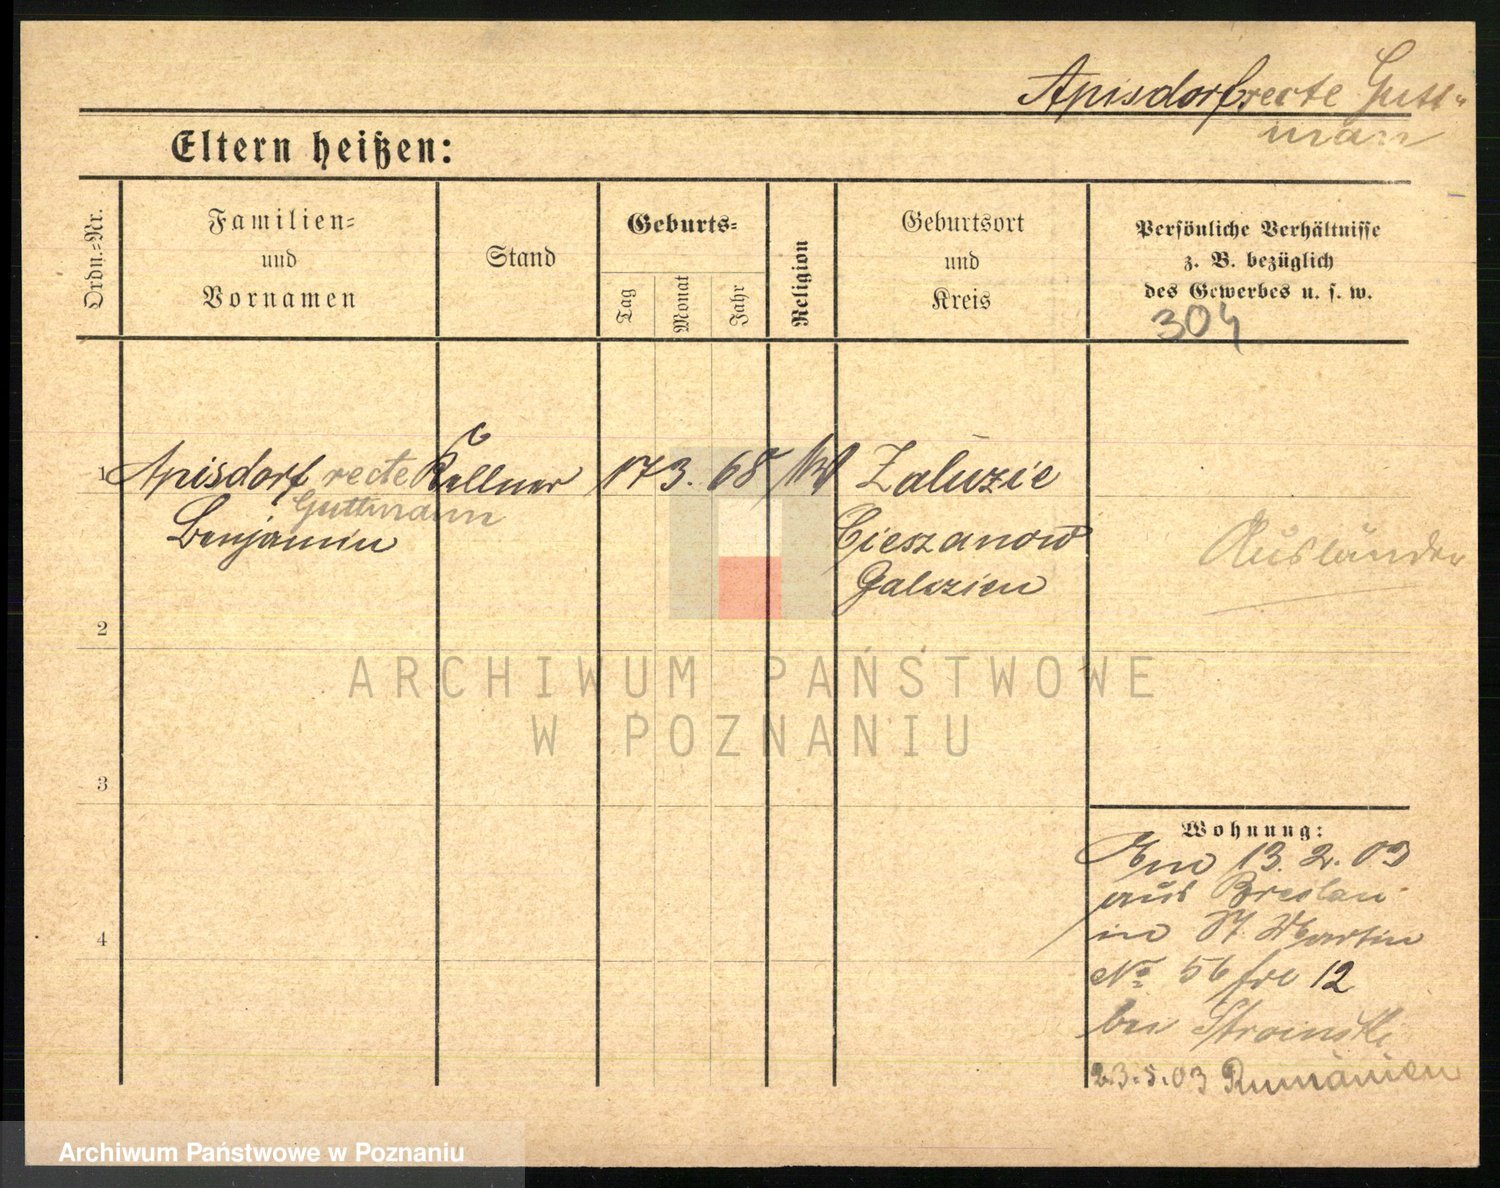 Apisdorf recte Gutt-
man
Eltern heißen:
Ordn.-Nr.
Familien-
und
Vornamen
Stand
Geburts-
Tag
Monat
Jahr
Religion
Geburtsort
und
Kreis
Persönliche Verhältnisse
z. B. bezüglich
des Gewerbes u. s. w.
304
1 Apisdorf recte Kellner 17 3. 68 Zaluzie
Guttmann
Benjamin Cieszanow
Galizien
Ausländer
2
3
4
Wohnung:
13. 2. 03
aus Breslau
in St. Martin
No 56 12
bei Stroinski
23.5.03 Rumänien
ARCHIWUM PAŃSTWOWE
W POZNANIU
Archiwum Państwowe w Poznaniu